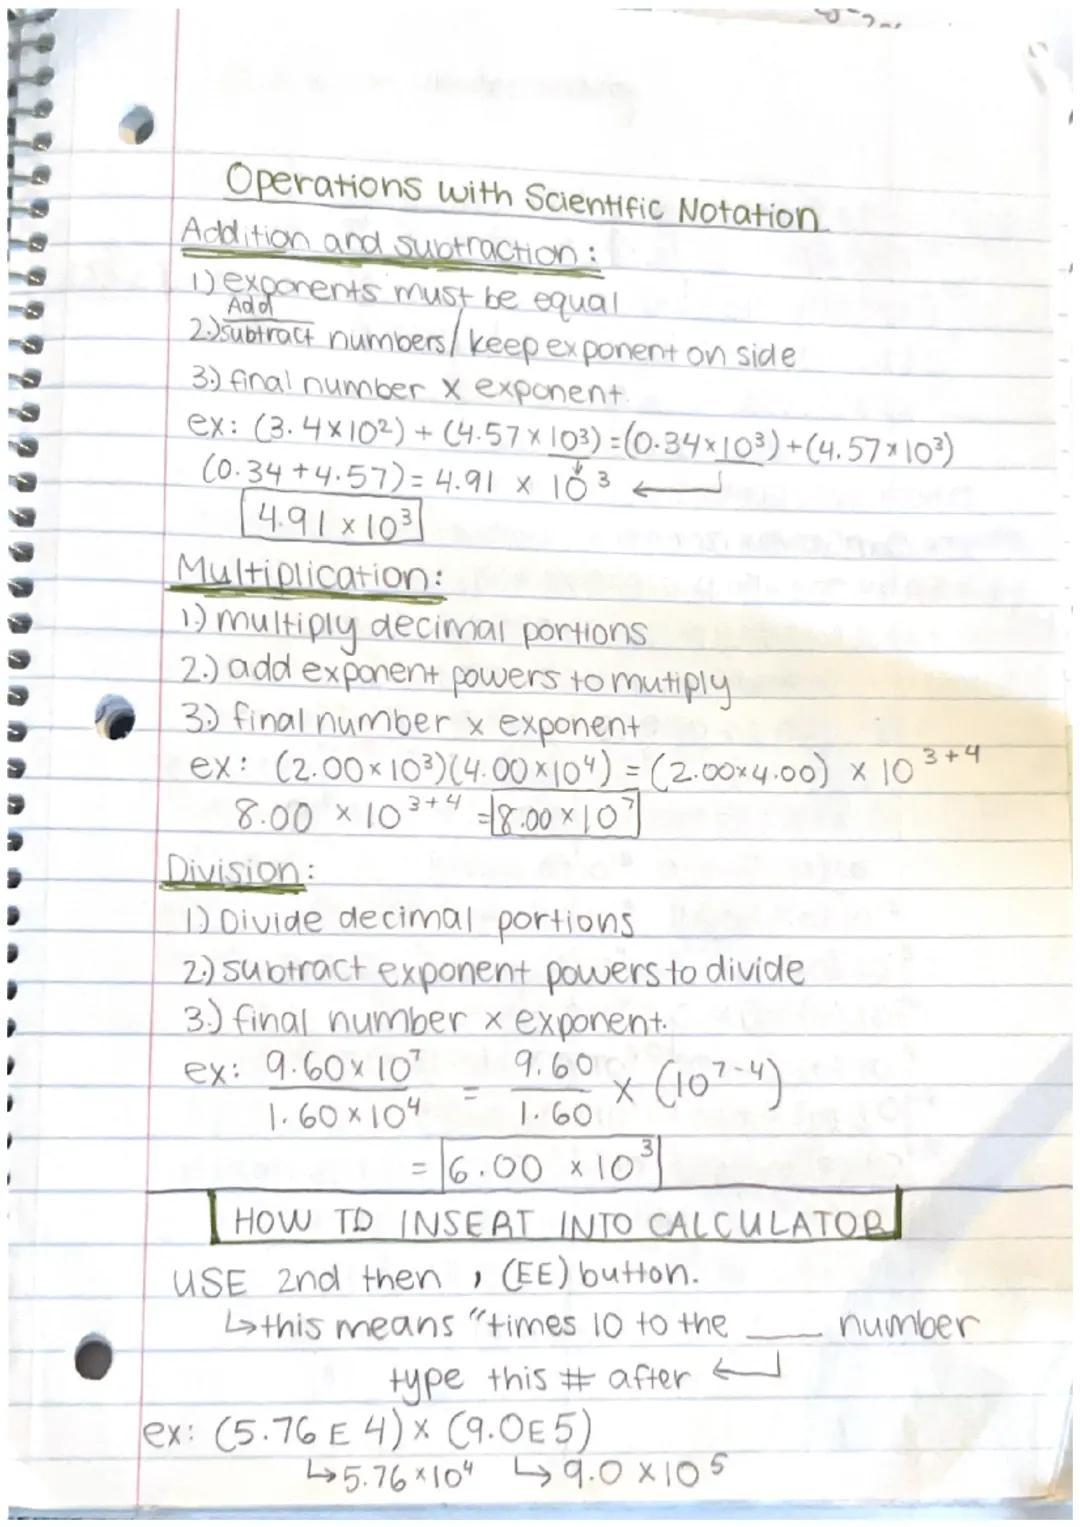 Operations with Scientific Notation
Addition and subtraction:
1) exponents must be equal
Add
2.) subtract numbers/keep exponent on side
3.) final number x exponent.
ex: (3.4x10²) + (4.57x10³) = (0.34x10³) + (4.57x10³)
(0.34+4.57) = 4.91 x 10³ ←
4.91 x 10³
Multiplication:
1.) multiply decimal portions
2.) add exponent powers to mutiply
3.) final number x exponent
ex: (2.00x10³)(4.00x10⁴) = (2.00x4.00) x 10³⁺⁴
8.00 x 10³⁺⁴ = 8.00 x 10⁷
Division:
1.) Divide decimal portions
2.) subtract exponent powers to divide
3.) final number x exponent.
ex: 9.60x10⁷ = 9.60 x (10⁷⁻⁴)
1.60x10⁴ 1.60
= 6.00 x 10³
HOW TO INSERT INTO CALCULATOR
USE 2nd then , (EE) button.
↳this means "times 10 to the ___ number
type this # after ←
ex: (5.76 E 4) x (9.0E5)
↳5.76x10⁴ ↳9.0 x10⁵